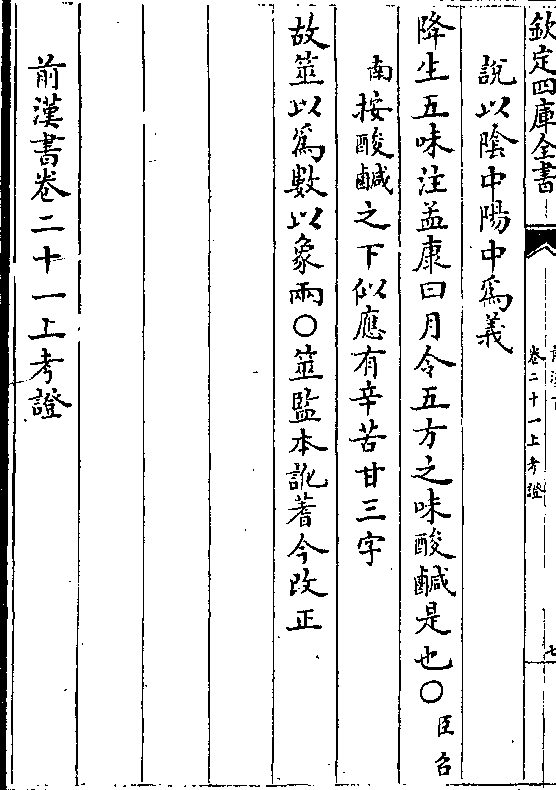 欽定四庫全書
卷二十一上考證
七
說以陰中陽中爲義
降生五味注孟康曰月令五方之味酸鹹是也○臣召
南按酸鹹之下似應有辛苦甘三字
故筮以爲數以象兩○筮監本訛蓍今改正
前漢書卷二十一上考證